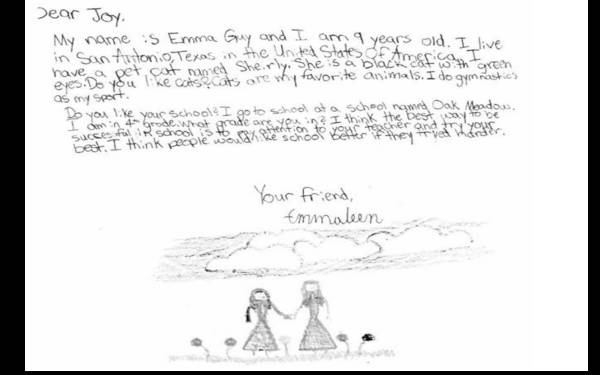 Dear Joy,
My name is Emma Guy and I am 9 years old. I live
in San Antonio, Texas in the United States Of America. I
have a pet cat named Sheirly. She is a black cat with green
eyes. Do you like cats? Cats are my favorite animals. I do gymnastics
as my sport.
Do you like your school? I go to school at a school named Oak Meadow.
I am in 4th grade. what grade are you in? I think the best way to be
successful in school is to pay attention to your teacher and try your
best. I think people would like school better if they tryed harder.
Your friend,
Emmaleen